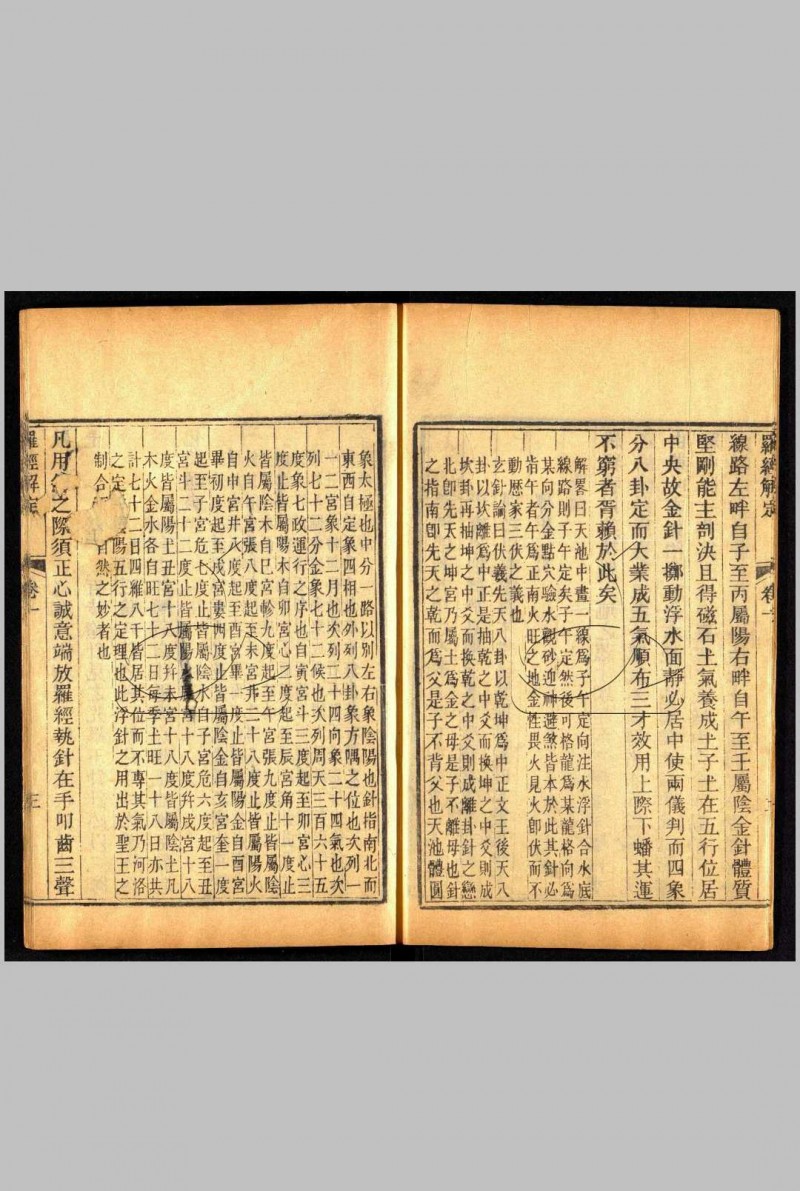 羅經解定
卷一
線路左畔自子至丙屬陽右畔自午至壬屬陰金針體質
堅剛能主剖決且得磁石土氣養成土子土在五行位居
中央故金針一擲動浮水面靜必居中使兩儀判而四象
分八卦定而大業成五氣順布三才效用上際下蟠其運
不窮者胥賴於此矣
解畧曰天池中畫一線爲子午定向注水浮針合水底
線路則子午定矣子午定然後可格龍爲某龍格向爲
某向分金點穴驗水觀砂迎神避煞皆本於此其針必
指午者午爲正南火旺之地金性畏火見火卽伏而不
動歷家三伏之義也
玄針論曰伏義先天八卦以乾坤爲中正文王後天八
卦以坎離爲中正是抽乾之中爻而換坤之中爻則成
坎卦再抽坤之中爻而換乾之中爻則成離卦針之戀
北卽先天之坤宮乃屬土爲金之母是子不離母也針
之指南卽先天之乾而爲父是子不背父也天池體圓
象太極也中分一路以別左右象陰陽也針指南北而
東西自定象四相也外列八卦象方隅之位也次列一
一二宮象十二月也次列二十四向象二十四氣也次
列七十二分金象七十二候也次列周天三百六十五
度象七政運行之序也自寅宮斗三度起至卯宮心三
度止皆屬陽木自卯宮心二度起至辰宮角十一度止
皆屬陰木自巳宮軫九度起至午宮張九度止皆屬陽
火自午宮張八度起至未宮井二十八度止皆屬陽火
自申宮井八度起至酉宮畢一度止皆屬陽金自酉宮
畢初度起至戌宮婁四度止皆屬陰金自亥宮奎一度
起至子宮危七度止皆屬陰水自子宮危六度起至丑
宮斗二十二度止皆屬陽 宮十八度幷戌宮十八
度皆屬陽土丑宮十八度幷未宮十八度皆屬陰土凡
木火金水各自旺七十二日每季土旺一十八日亦共
計七十二日四維八干皆居其位而不專其氣乃河洛
之定 陽五行之定理也此浮針之用出於聖王之
制合 自然之妙者也
凡用 之際須正心誠意端放羅經執針在手叩齒三聲
羅經解定
卷一
三